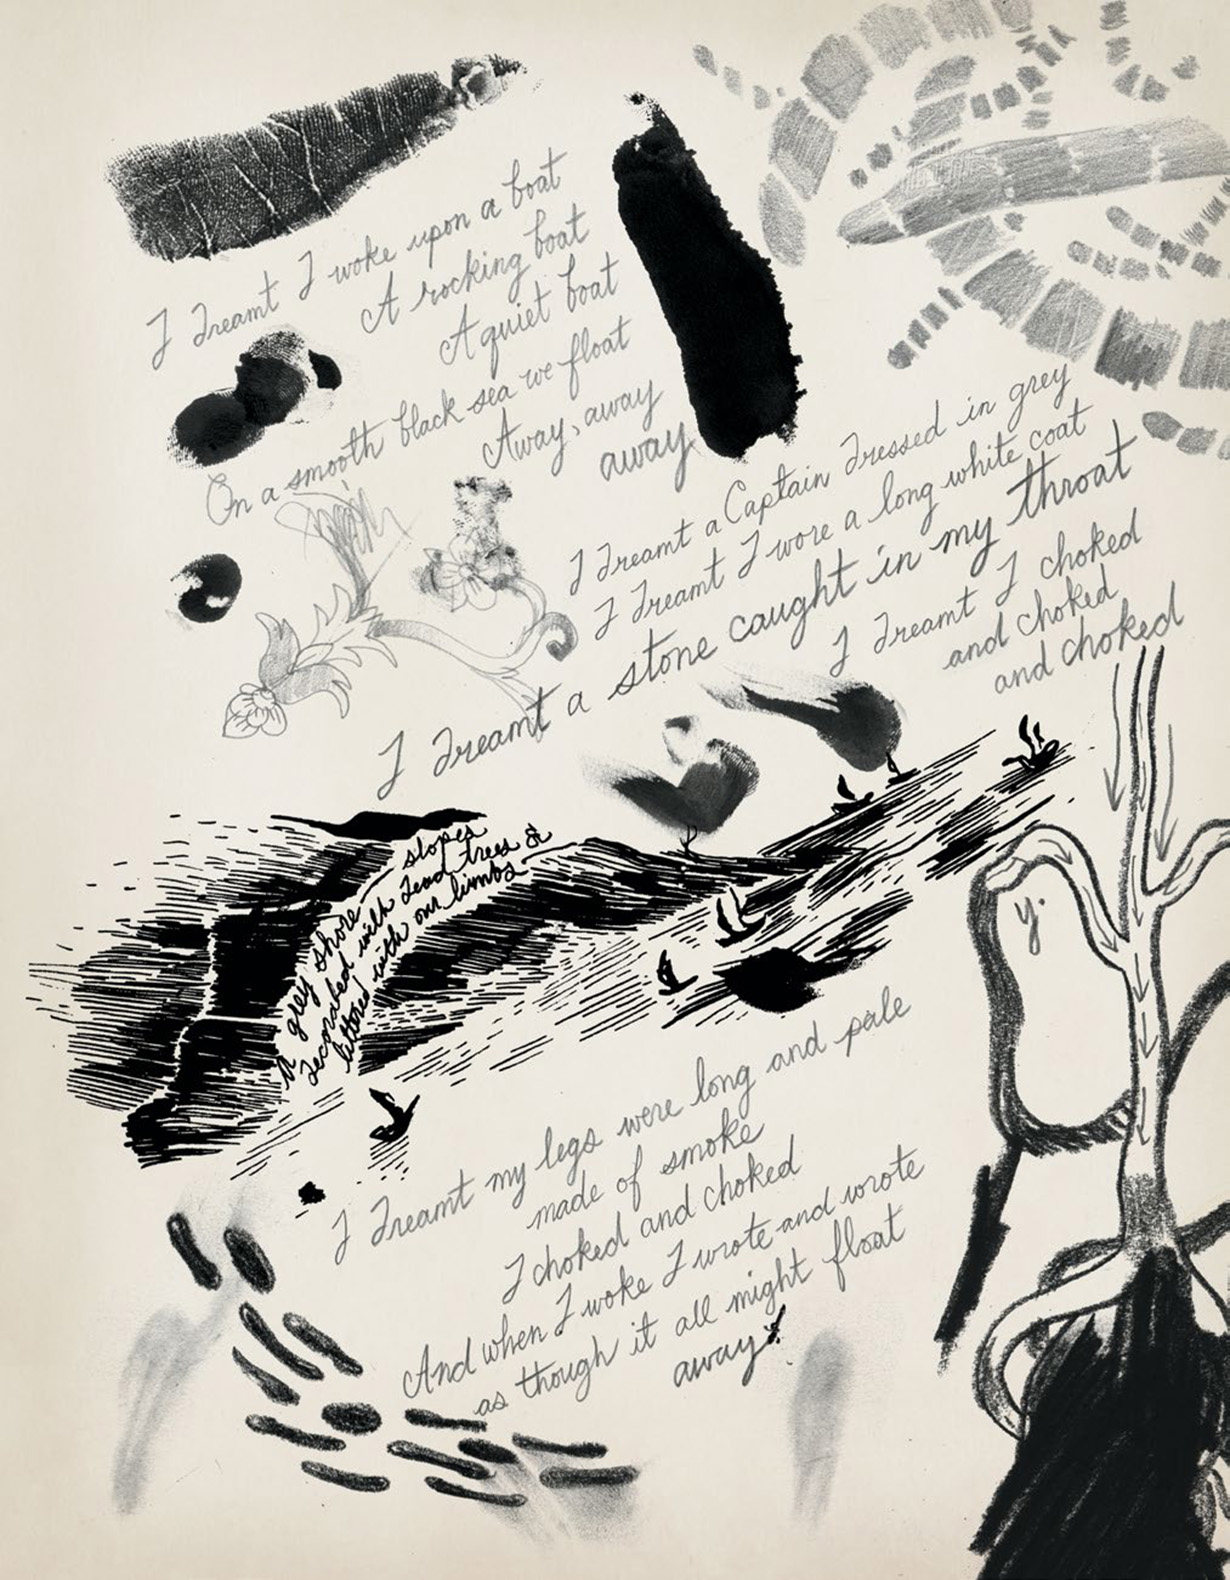 I dreamt I woke upon a boat
A rocking boat
A quiet boat
On a smooth black sea we float
Away, away
away
I dreamt a Captain dressed in grey
I dreamt I wore a long white coat
I dreamt a stone caught in my throat
I dreamt I choked
and choked
and choked
A grey shore slopes
decorated with dead trees &
littered with our limbs
y.
I dreamt my legs were long and pale
made of smoke
I choked and choked
And when I woke I wrote and wrote
as though it all might float
away